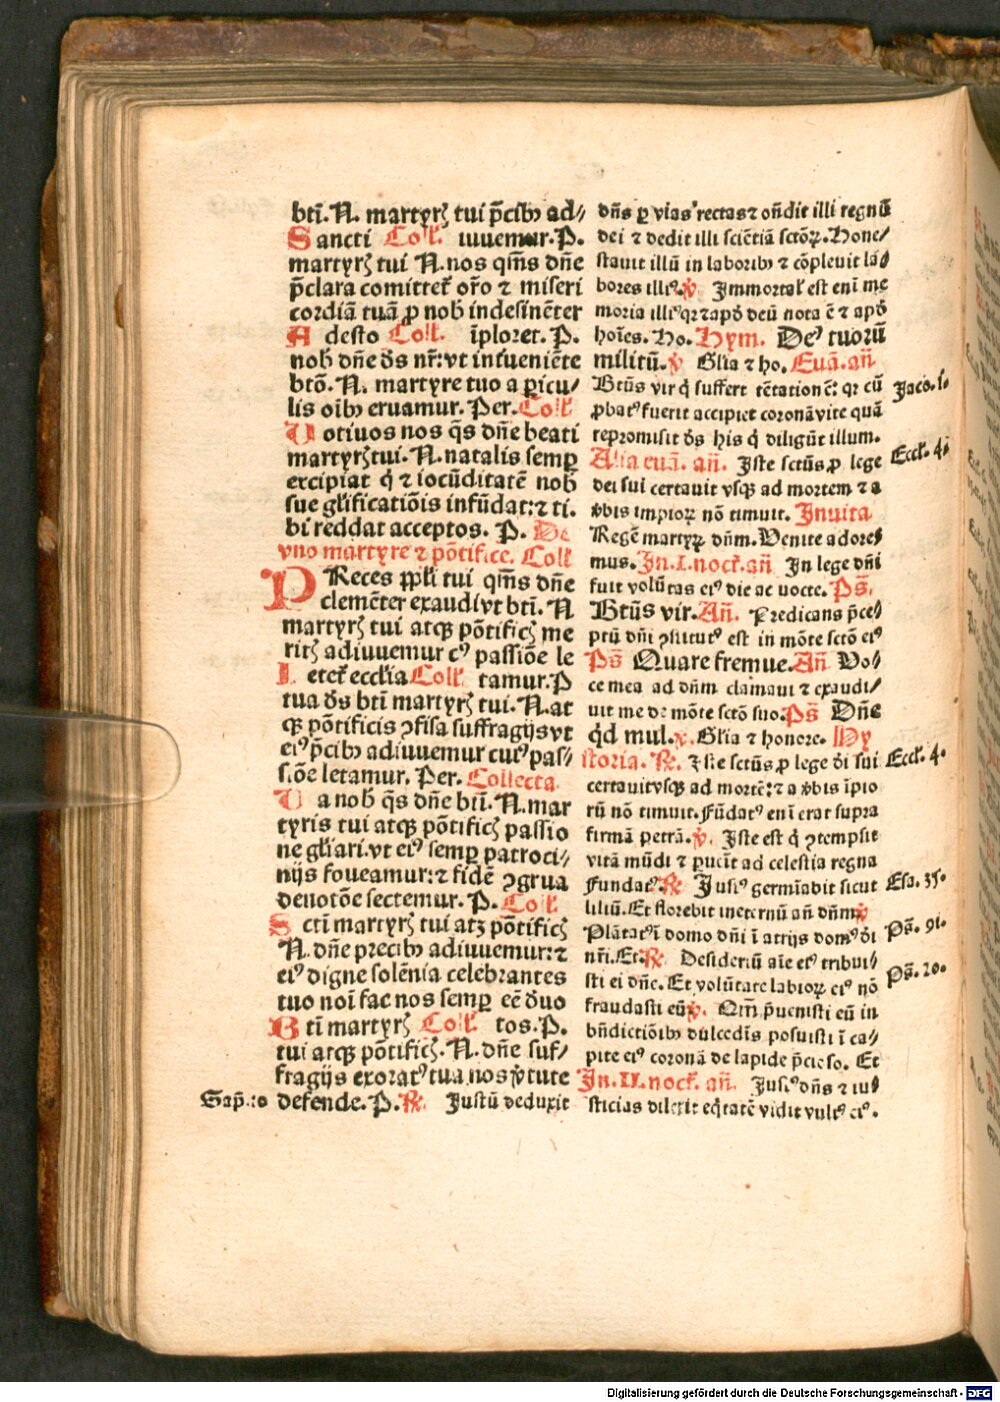 btī. N. martyrꝫ tui p̄cibꝫ ad⸗
Sancti Coll. iuuemur. P.
martyrꝫ tui N. nos qm̄s dn̄e
p̄clara comitteꝉ or̄o ⁊ miseri
cordiā tuā ꝓ nob̄ indesinēter
Adesto Coll. īploret. P.
nob̄ dn̄e ds̄ nr̄: vt inťueniēte
btō. N. martyre tuo a ꝑicu⸗
lis oīb̄ eruamur. Per. Coll
Votiuos nos qs̄ dn̄e beati
martyrꝫ tui. N. natalis semꝑ
ercipiat q̇ ⁊ iocūditatē nob̄
sue gl̄ificatiōis infūdat: ⁊ ti.
bi reddat acceptos. P. De
vno martyre ⁊ pōtifice. Coll
PReces ppl̄i tui qm̄s dn̄e
clemēter exaudi vt btī. N
martyrꝫ tui atqꝫ pōtificꝫ me
ritꝫ adiuuemur cꝰ passiōe le
Leteť eccl̄ia Coll. tamur. P
tua ds̄ btī martyrꝫ tui. N. at
qꝫ pōtificis ꝯfisa suffragijs vt
eiꝰ p̄cibꝫ adiuuemur cuiꝰ pas⸗
siōe letamur. Per. Collecta.
Da nob̄ qs̄ dn̄e btī. N. mar
tyris tui atqꝫ pōtificꝫ passio
ne gl̄iari. vt eiꝰ semꝑ patroci⸗
nijs foueamur: ⁊ fidē ꝯgrua
deuotōe sectemur. P. Coll.
Sctī martyrꝫ tui atꝫ pōtificꝫ
N. dn̄e precibꝫ adiuuemur: ⁊
eiꝰ digne solēnia celebrantes
tuo noī fac nos semꝑ eē deuo
Btī martyrꝫ Coll. tos. P.
tui atqꝫ pōtificꝫ. N. dn̄e suf⸗
fragijs exoratꝰ tua nos v̇tute
Sap. 10 defende. P. ℞. Justū deduxit
dn̄s ꝑ vias rectas ⁊ on̄dit illi regnū
dei ⁊ dedit illi sciētiā sctōꝝ. Hone⸗
stauit illū in laboribꝫ ⁊ cōpleuit la⸗
bores illiꝰ. ℣ Jmmortaľ est enī me
moria illiꝰ qꝛ ⁊ apd̄ deū nota ē ⁊ apd̄
hoīes. Ho. Hym. Deꝰ tuorū
militū. ℣ Gl̄ia ⁊ ho. Euā. an̄
Btūs vir q̇ suffert tētationē: qꝛ cū Jaco. 1.
ꝓbatꝰ fuerit accipiet coronā vite quā
repromisit ds̄ his q̇ diligūt illum.
Alia euā. an̄. Jste sctūs ꝓ lege Eccľ. 4.
dei sui certauit vsqꝫ ad mortem ⁊ a
v̇bis impioꝝ nō timuit. Jnuita
Regē martyꝝ dn̄m. Venite adore⸗
mus. Jn. I. nocť. an̄ Jn lege dn̄i
fuit volūtas eiꝰ die ac nocte. Ps̄.
Btūs vir. An̄. Predicans p̄ce⸗
ptū dn̄i ꝯstitutꝰ est in mōte sctō eiꝰ
Ps̄ Quare fremue. An̄ Vo⸗
ce mea ad dn̄m clamaui ⁊ exaudi⸗
uit me de mōte sctō suo. Ps̄ Dn̄e
qd̄ mul. ℣. Gl̄ia ⁊ honore. Hy
storia. ℞. Jste sctūs ꝓ lege dei sui Eccľ. 4.
certauit vsqꝫ ad mortē: ⁊ a v̇bis īpio
rū nō timuit. Fūdatꝰ enī erat supra
firmā petrā. ℣. Jste est q̇ ꝯtempsit
vitā mūdi ⁊ ꝑuēit ad celestia regna
Fundatꝰ. ℞ Jusꝰ germīabit sicut Esa. 35.
liliū. Et florebit ineternū an̄ dn̄m ℣
Plātatꝰ ī domo dn̄i ī atrijs domꝰ dei Ps̄. 91.
nr̄i. Et. ℞. Desideriū aīe eiꝰ tribui⸗
sti ei dn̄e. Et volūtate labioꝝ eiꝰ nō Ps̄. 20.
fraudasti eū ℣. Qm̄ p̄uenisti eū in
bn̄dictiōibꝫ dulcedīs posuisti ī ca⸗
pite eiꝰ coronā de lapide p̄cioso. Et
Jn. II. nocť. an̄. Jusꝰ dn̄s ⁊ iu⸗
sticias dilexit eq̇tatē vidit vultꝰ eiꝰ.
Digitalisierung gefördert durch die Deutsche Forschungsgemeinschaft - DFG